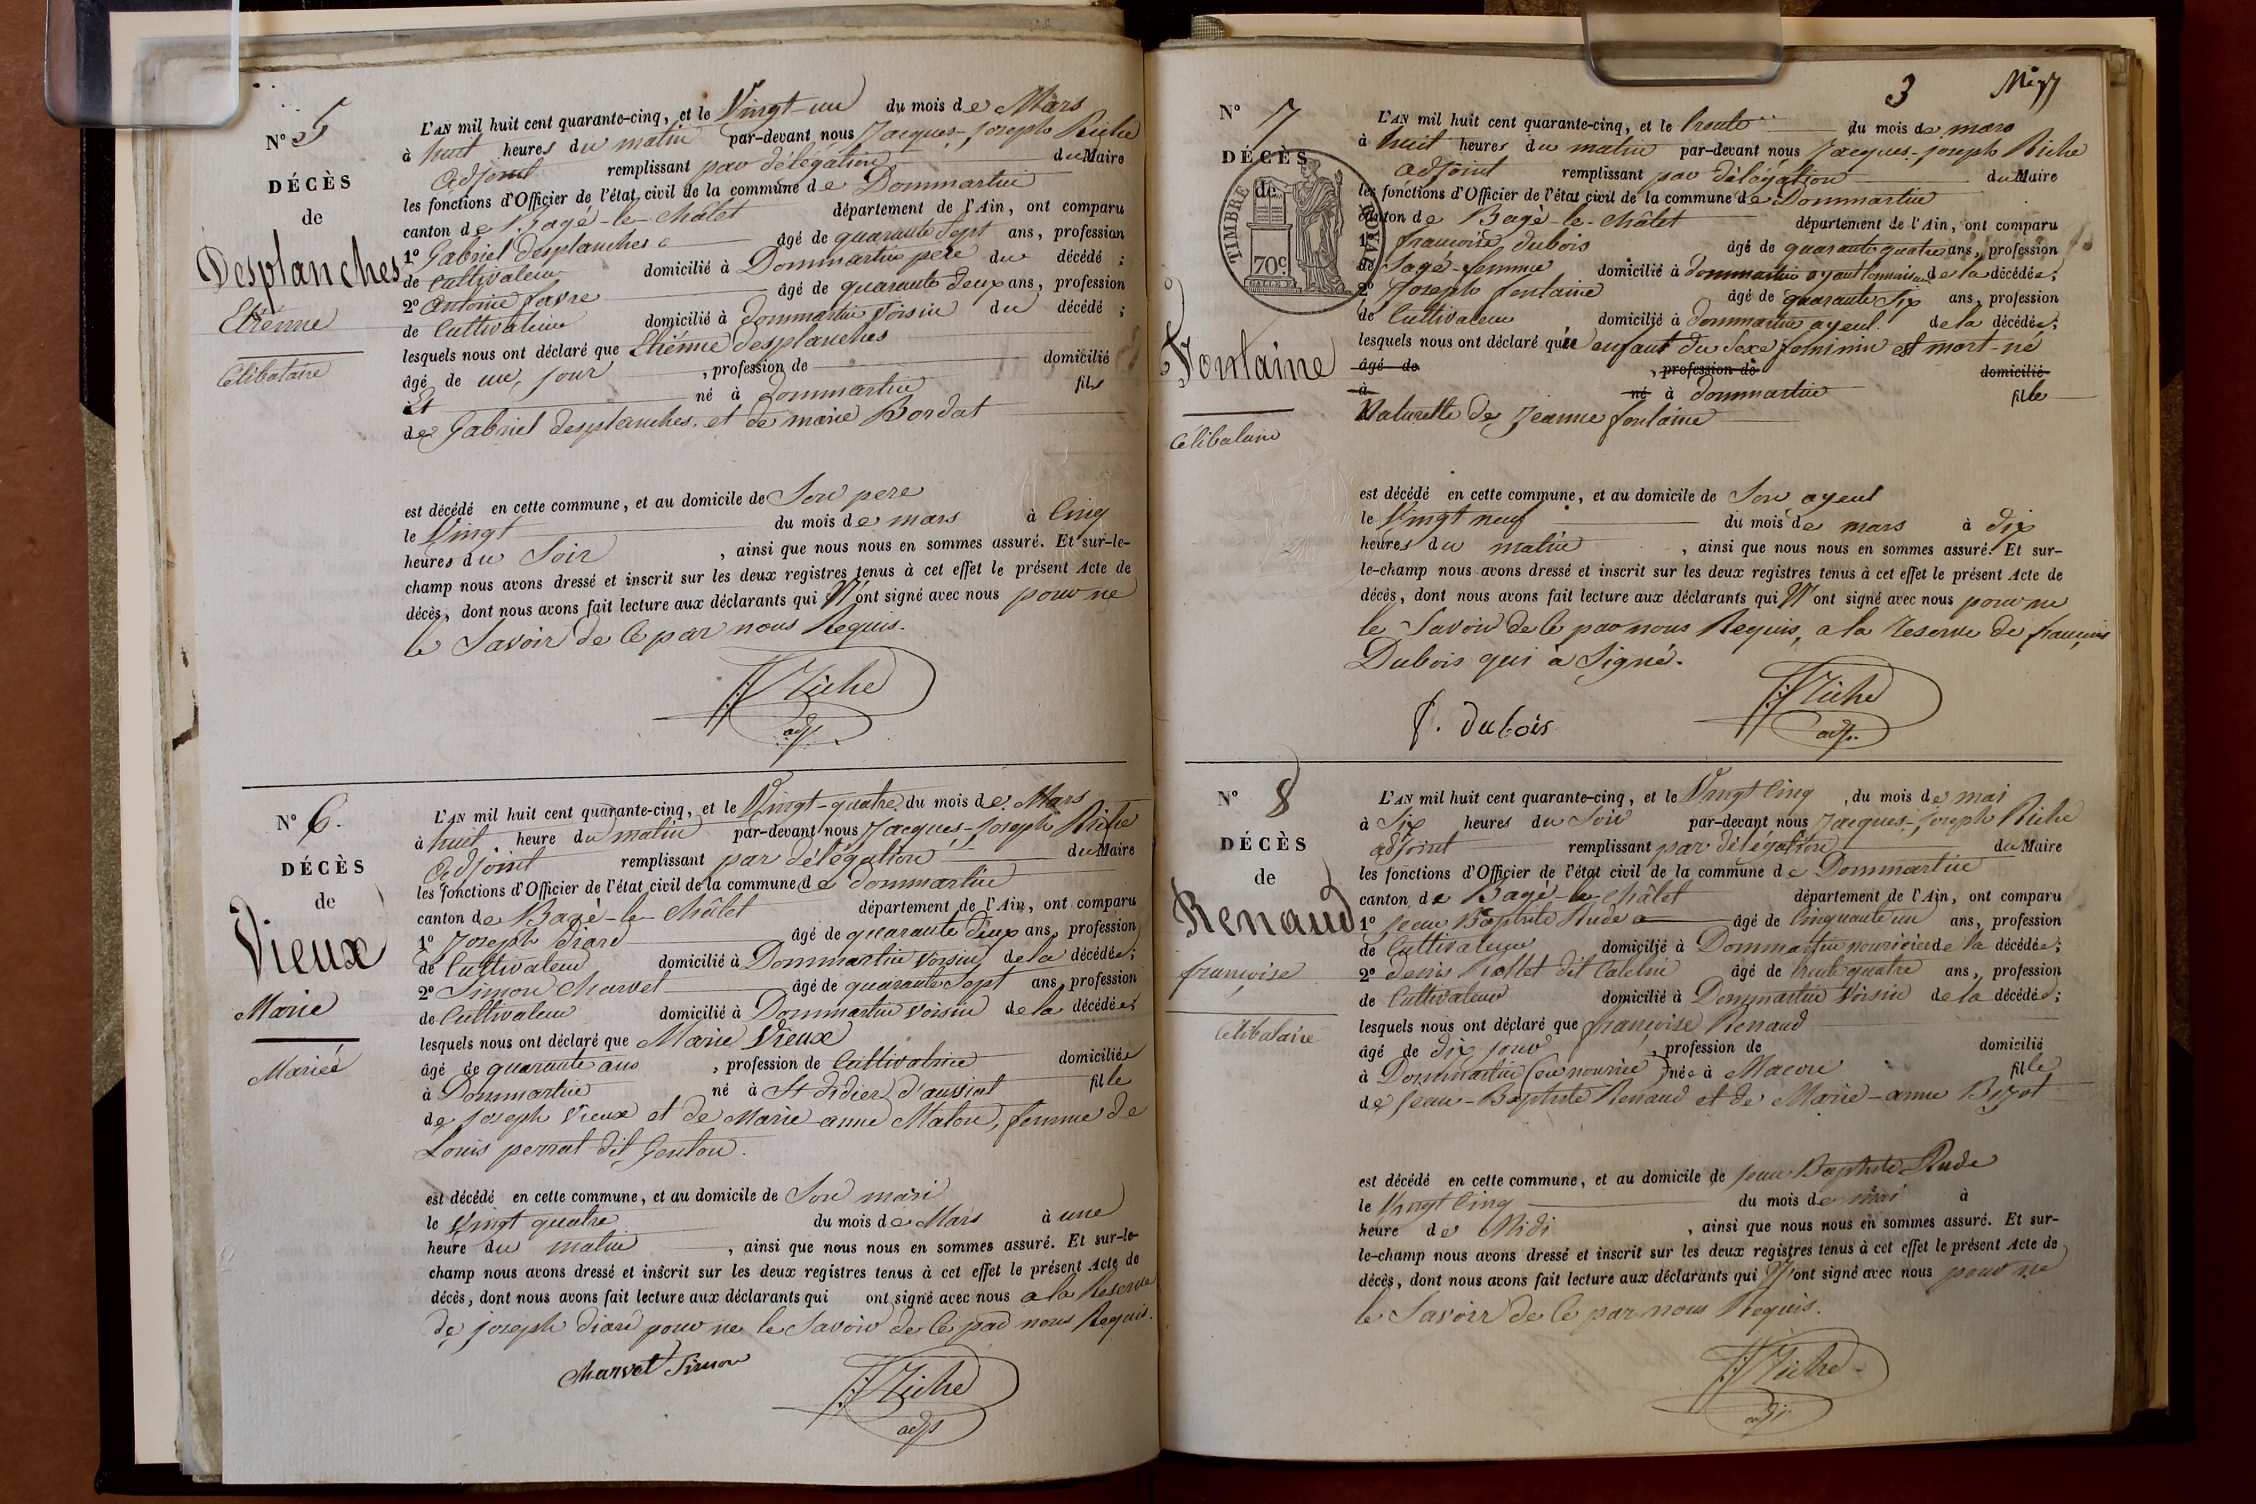 N° 5
DÉCÈS
de
Desplanches
Etiénne
Célibataire
L'AN mil huit cent quarante-cinq, et le Vingt-un du mois de Mars
à huit heures du matin par-devant nous Jacques-Joseph Riche
Adjoint remplissant par délégation du Maire
les fonctions d'Officier de l'état civil de la commune de Dommartin
canton de Bagé-le-Châlet département de l'Ain, ont comparu
1° Gabriel Desplanches âgé de quarante Sept ans, profession
de Cultivateur domicilié à Dommartin pere du décédé ;
2° Antoine favre âgé de quarante deux ans, profession
de Cultivateur domicilié à Dommartin Voisin du décédé ;
lesquels nous ont déclaré que Etiénne desplanches
âgé de un jour , profession de domicilié
Et né à Dommartin fils
de Gabriel desplanches et de marie Bordat
est décédé en cette commune, et au domicile de Son pere
le Vingt du mois de mars à Cinq
heures du Soir , ainsi que nous nous en sommes assuré. Et sur-le-
champ nous avons dressé et inscrit sur les deux registres tenus à cet effet le présent Acte de
décès, dont nous avons fait lecture aux déclarants qui N'ont signé avec nous pour ne
le Savoir de Ce par nous Requis.
JJ Riche
adj.
N° 6.
DÉCÈS
de
Vieux
Marie
Mariée
L'AN mil huit cent quarante-cinq, et le Vingt-quatre du mois de Mars
à huit heure du matin par-devant nous Jacques-Joseph Riche
Adjoint remplissant par délégation du Maire
les fonctions d'Officier de l'état civil de la commune de Dommartin
canton de Bagé-le-Châlet département de l'Ain, ont comparu
1° Joseph diard âgé de quarante deux ans, profession
de Cultivateur domicilié à Dommartin Voisin de la décédée ;
2° Simon Marvet âgé de quarante Sept ans, profession
de Cultivateur domicilié à Dommartin Voisin de la décédée ;
lesquels nous ont déclaré que Marie Vieux
âgé de quarante ans , profession de Cultivatrice domiciliée
à Dommartin né à St didier d'aussiat fille
de Joseph Vieux et de Marie anne Maton, femme de
Louis perrat dit Genton.
est décédé en cette commune, et au domicile de Son mari
le Vingt quatre du mois de Mars à une
heure du matin , ainsi que nous nous en sommes assuré. Et sur-le-
champ nous avons dressé et inscrit sur les deux registres tenus à cet effet le présent Acte de
décès, dont nous avons fait lecture aux déclarants qui ont signé avec nous a la Reserve
de joseph diard pour ne le Savoir de Ce par nous Requis.
Marvet Simon
JJ Riche
adj
3
N° 7
DÉCÈS
de
TIMBRE ROYAL
70c
Fontaine
Célibataire
L'AN mil huit cent quarante-cinq, et le trente du mois de mars
à huit heures du matin par-devant nous Jacques-Joseph Riche
adjoint remplissant par délégation du Maire
les fonctions d'Officier de l'état civil de la commune de Dommartin
canton de Bagé-le-Châlet département de l'Ain, ont comparu
1° françoise dubois âgé de quarante quatre ans, profession
de Sage-femme domicilié à dommartin de la décédée ;
2° Joseph fontaine âgé de quarante Six ans, profession
de Cultivateur domicilié à dommartin ayeul de la décédée ;
lesquels nous ont déclaré qu'un enfant du Sexe feminin est mort-né
âgé de , profession de domicilié
à né à dommartin fille
Naturelle de Jeanne fontaine
est décédé en cette commune, et au domicile de Son ayeul
le Vingt neuf du mois de mars à dix
heures du matin , ainsi que nous nous en sommes assuré. Et sur-
le-champ nous avons dressé et inscrit sur les deux registres tenus à cet effet le présent Acte de
décès, dont nous avons fait lecture aux déclarants qui N'ont signé avec nous pour ne
le Savoir de Ce par nous Requis, a la reserve de françoise
Dubois qui à Signé.
f. dubois
JJ Riche
adj.
N° 8
DÉCÈS
de
Renaud
françoise
Célibataire
L'AN mil huit cent quarante-cinq, et le Vingt Cinq du mois de mai
à Six heures du Soir par-devant nous Jacques-Joseph Riche
adjoint remplissant par délégation du Maire
les fonctions d'Officier de l'état civil de la commune de Dommartin
canton de Bagé-le-Châlet département de l'Ain, ont comparu
1° Jean Baptiste Rude âgé de Cinquante un ans, profession
de Cultivateur domicilié à Dommartin nouricier de la décédée ;
2° denis dit Catelin âgé de trente quatre ans, profession
de Cultivateur domicilié à Dommartin Voisin de la décédée ;
lesquels nous ont déclaré que françoise Renaud
âgé de dix jour , profession de domicilié
à Dommartin (en nourrice) née à Macon fille
de Jean-Baptiste Renaud et de Marie-anne Bizot
est décédé en cette commune, et au domicile de jean Baptiste Rude
le Vingt Cinq du mois de mai à
heure de Midi , ainsi que nous nous en sommes assuré. Et sur-
le-champ nous avons dressé et inscrit sur les deux registres tenus à cet effet le présent Acte de
décès, dont nous avons fait lecture aux déclarants qui N'ont signé avec nous pour ne
le Savoir de Ce par nous Requis.
JJ Riche
adj.